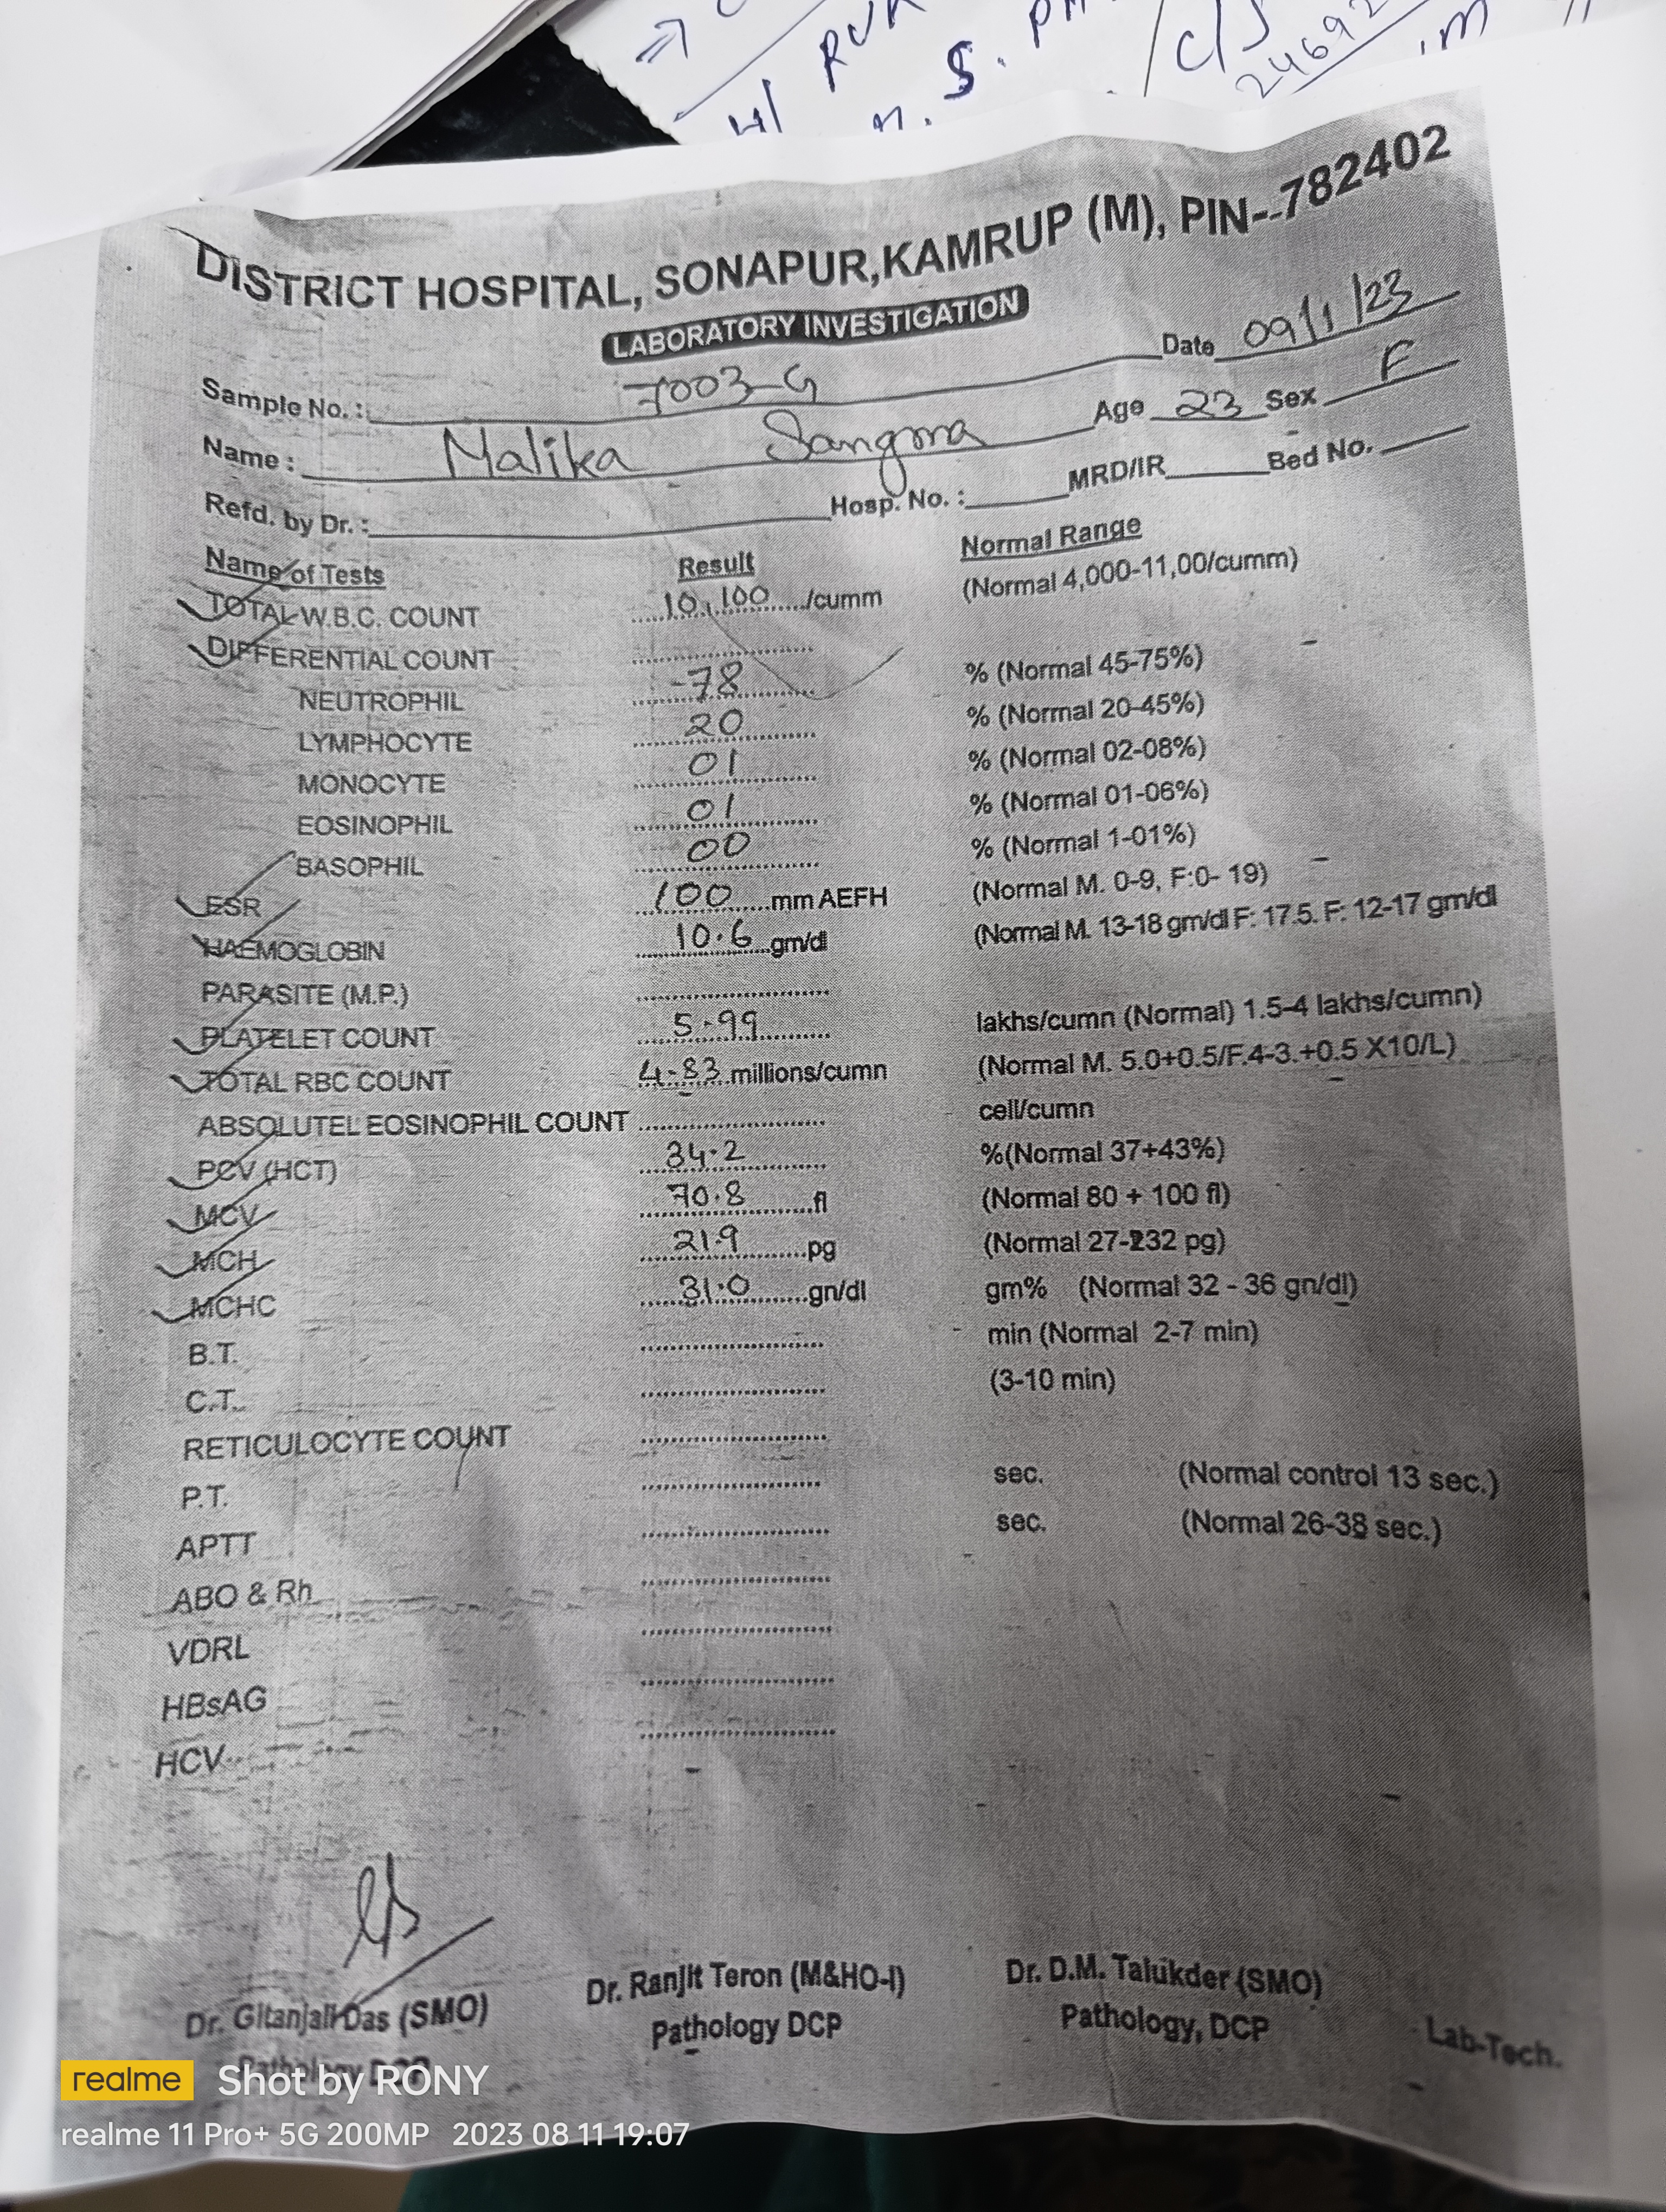 S.
c/s
24692
DISTRICT HOSPITAL, SONAPUR,KAMRUP (M), PIN--782402
LABORATORY INVESTIGATION
Date 09/1/23
Sample No. : 7003-G
Name : Malika Sangma Age 23 Sex F
Refd. by Dr. : Hosp. No. : MRD/IR Bed No.
Name of Tests Result Normal Range
TOTAL W.B.C. COUNT 10,100 /cumm (Normal 4,000-11,00/cumm)
DIFFERENTIAL COUNT
NEUTROPHIL -78 % (Normal 45-75%)
LYMPHOCYTE 20 % (Normal 20-45%)
MONOCYTE 01 % (Normal 02-08%)
EOSINOPHIL 01 % (Normal 01-06%)
BASOPHIL 00 % (Normal 1-01%)
ESR 100 mm AEFH (Normal M. 0-9, F:0- 19)
HAEMOGLOBIN 10.6 gm/dl (Normal M. 13-18 gm/dl F: 17.5. F: 12-17 gm/dl
PARASITE (M.P.)
PLATELET COUNT 5.99 lakhs/cumn (Normal) 1.5-4 lakhs/cumn)
TOTAL RBC COUNT 4.83 millions/cumn (Normal M. 5.0+0.5/F.4-3.+0.5 X10/L)
ABSOLUTEL EOSINOPHIL COUNT cell/cumn
PCV (HCT) 34.2 %(Normal 37+43%)
MCV 70.8 fl (Normal 80 + 100 fl)
MCH 21.9 pg (Normal 27-232 pg)
MCHC 31.0 gn/dl gm% (Normal 32 - 36 gn/dl)
B.T. min (Normal 2-7 min)
C.T. (3-10 min)
RETICULOCYTE COUNT
P.T. sec. (Normal control 13 sec.)
APTT sec. (Normal 26-38 sec.)
ABO & Rh
VDRL
HBsAG
HCV
Dr. Gitanjali Das (SMO) Dr. Ranjit Teron (M&HO-I) Dr. D.M. Talukder (SMO)
Pathology DCP Pathology DCP Pathology, DCP Lab-Tech.
realme Shot by RONY
realme 11 Pro+ 5G 200MP 2023 08 11 19:07